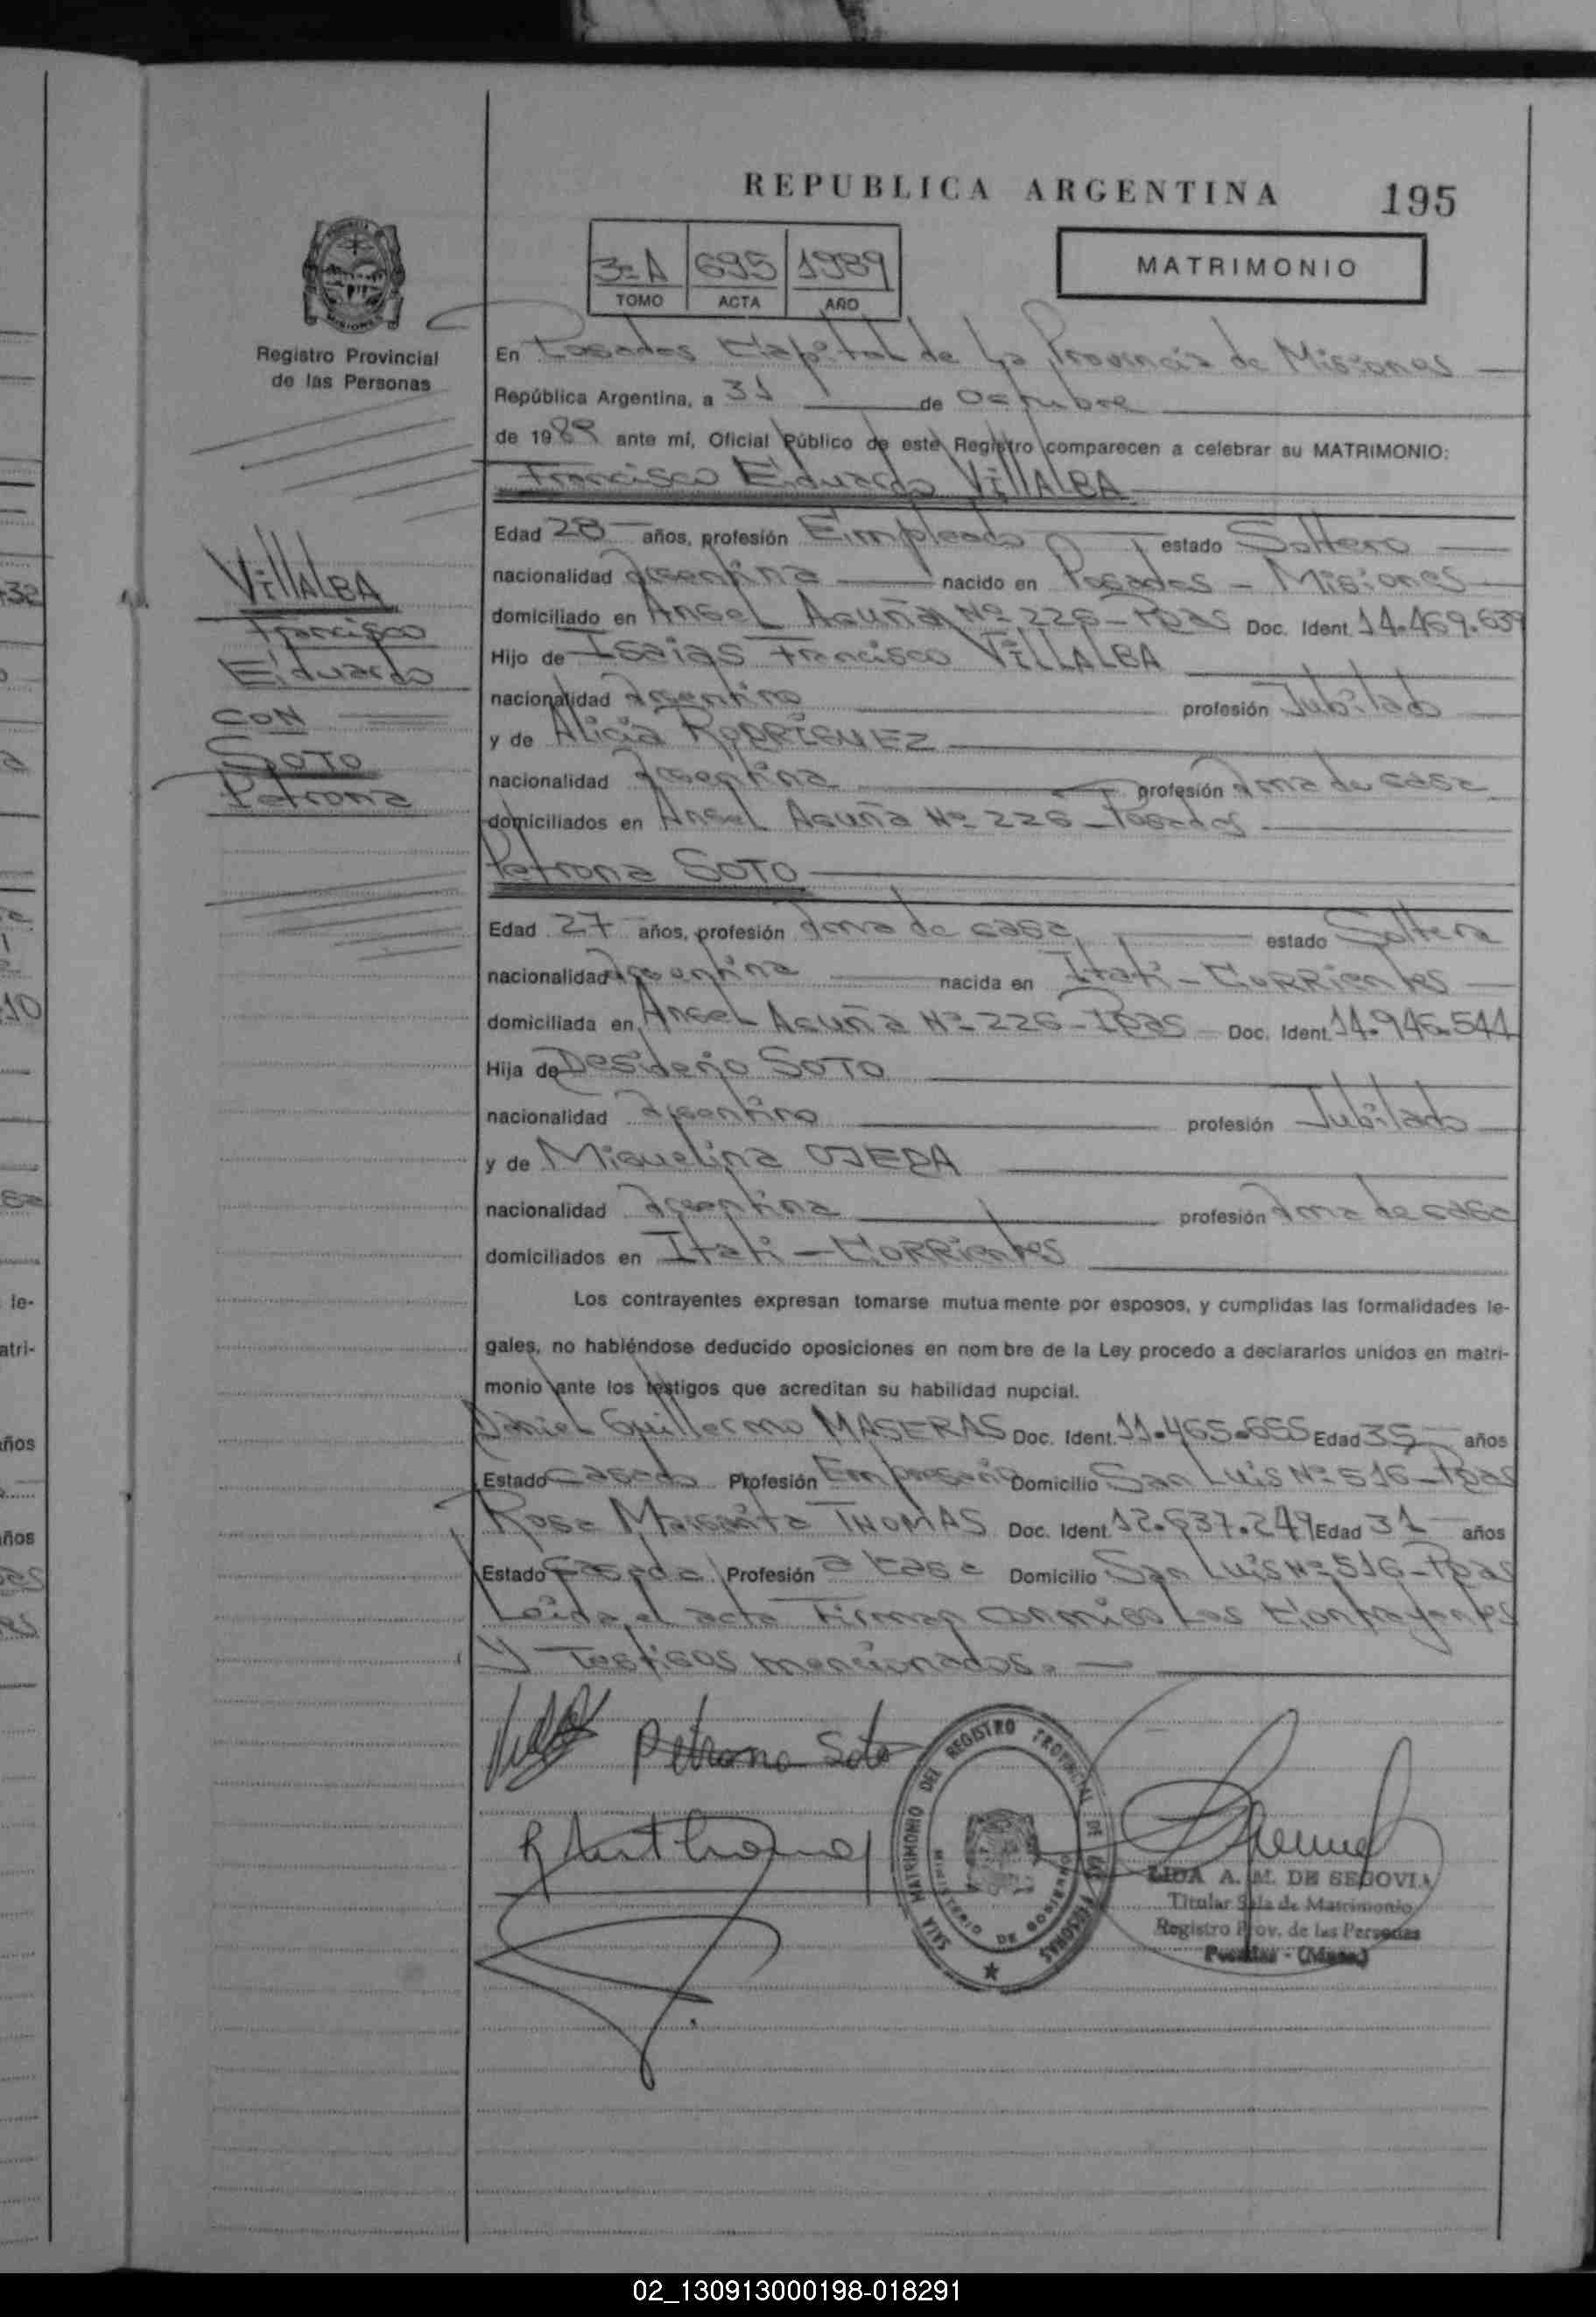 REPUBLICA ARGENTINA 195
3=A 695 1989
TOMO ACTA AÑO
MATRIMONIO
Registro Provincial
de las Personas
En Posadas Capital de La Provincia de Misiones
República Argentina, a 31 de Octubre
de 1989 ante mí, Oficial Público de este Registro comparecen a celebrar su MATRIMONIO:
Francisco Eduardo VILLALBA
Edad 28 años, profesión Empleado estado Soltero
nacionalidad Argentina nacido en Posadas - Misiones
domiciliado en Angel Acuña Nº 226 - Pdas Doc. Ident. 14.469.639
Hijo de Isaias Francisco VILLALBA
nacionalidad Argentino profesión Jubilado
y de Alicia RODRIGUEZ
nacionalidad Argentina profesión Ama de casa
domiciliados en Angel Acuña Nº 226 - Posadas
VILLALBA
Francisco
Eduardo
CON
SOTO
Petrona
Petrona SOTO
Edad 27 años, profesión Ama de casa estado Soltera
nacionalidad Argentina nacida en Itati - CORRientes
domiciliada en Angel Acuña Nº 226 - Pdas Doc. Ident. 14.946.544
Hija de Desiderio SOTO
nacionalidad Argentino profesión Jubilado
y de Miguelina OJEDA
nacionalidad Argentina profesión Ama de casa
domiciliados en Itati - CORRientes
Los contrayentes expresan tomarse mutuamente por esposos, y cumplidas las formalidades le-
gales, no habiéndose deducido oposiciones en nombre de la Ley procedo a declararlos unidos en matri-
monio ante los testigos que acreditan su habilidad nupcial.
Daniel Guillermo MASERAS Doc. Ident. 11.465.655 Edad 35 años
Estado Casado Profesión Empresario Domicilio San Luis Nº 516 - Pdas
Rosa Margarita THOMAS Doc. Ident. 12.637.249 Edad 31 años
Estado Casada Profesión a casa Domicilio San Luis Nº 516 - Pdas
Leida el acta Firman conmigo Los Contrayentes
y Testigos mencionados.
Petrona Soto
SALA MATRIMONIO DEL REGISTRO PROVINCIAL DE LAS PERSONAS
MINISTERIO DE GOBIERNO
LIDA A. M. DE SEGOVIA
Titular Sala de Matrimonio
Registro Prov. de las Personas
Posadas - (Mnes)
32
10
le-
atri-
años
años
02_130913000198-018291